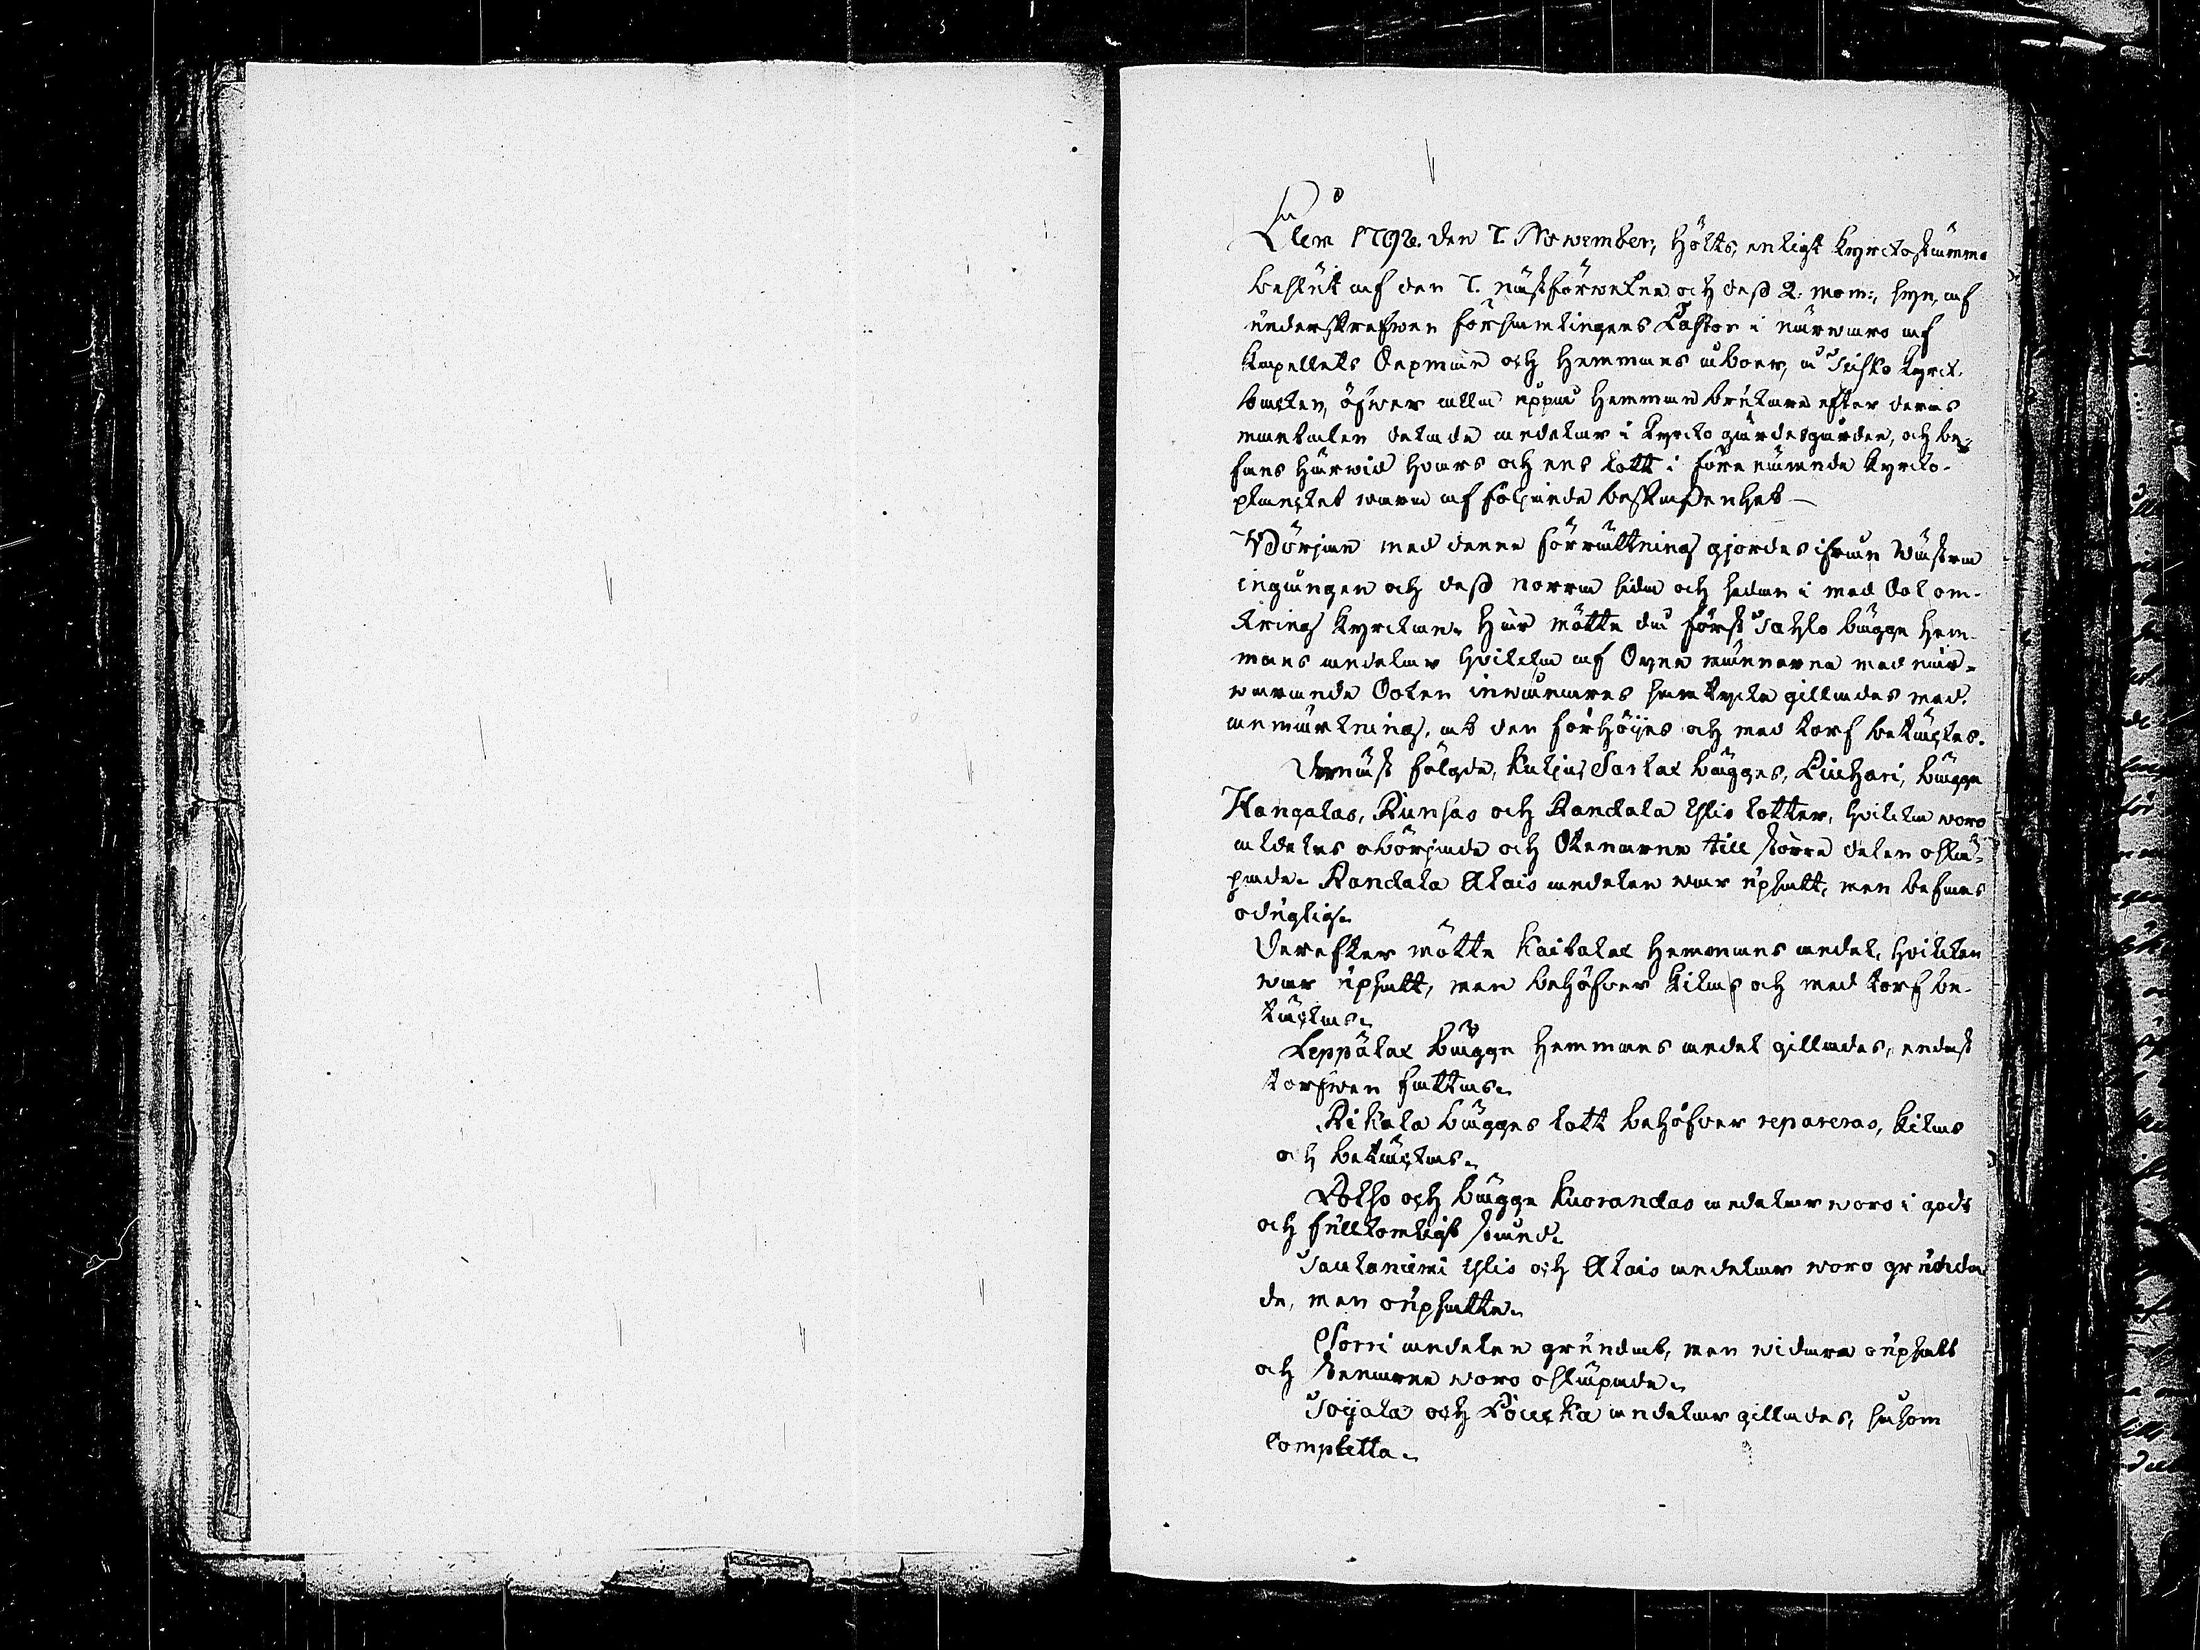 Åren 1792. den 7. November, hölts, enligt Kyrckostämmo
beslut af den 7. nästförwekne och dess 2. mom:, syn, af
underskrefwen församlingens Pastor i närwaro af
Kapellets Oepmän och Hemmans åboer, å Kyrck-
backen, öfwer alla uppå Hemmans brukare efter deras
mantalen delade andelar i Kyrcko gärdesgården, och be-
fans härwid hvars och ens lott i före nämnda Kyrcko-
plancket wara af följande beskaffenhet —
Början med denna förrättning gjordes ifrån Wästra
ingången och dess norra sida och sedan i med Sol om-
kring Kyrckan. Här mötte då först bägge Hem-
mans andelar hvilcka af Synemännerna med när-
warande Socken inwånares samtycke gillades med
anmärkning, at den förhöijes och med torf betäckes.
Dernäst fölgde, Kuljus, bägges, bägge
Kangalas, och Randala Ylis lotter, hvilcka woro
aldeles obörjade och Stenarne till större delen oslä-
pade. Randala Alais andelen war upsatt, men befans
oduglig.
Derefter mötte Kaitalas Hemmans andel, hvilcken
war upsatt, men behöfver kilas och med torf be-
täckas.
Leppälax bägge Hemmans andel gillades, endast
torfwen fattas.
bägges lott behöfver repareras, kilas
och betäckas.
och bägge Kuorandas andelar woro i godt
och fullkomligt stånd.
Ylis och Alais andelar woro grunda-
de, men oupsatte.
Sorri andelen grundat, men widare oupsatt
och Stenarne woro osläpade.
och andelar gillades, såsom
Completta.